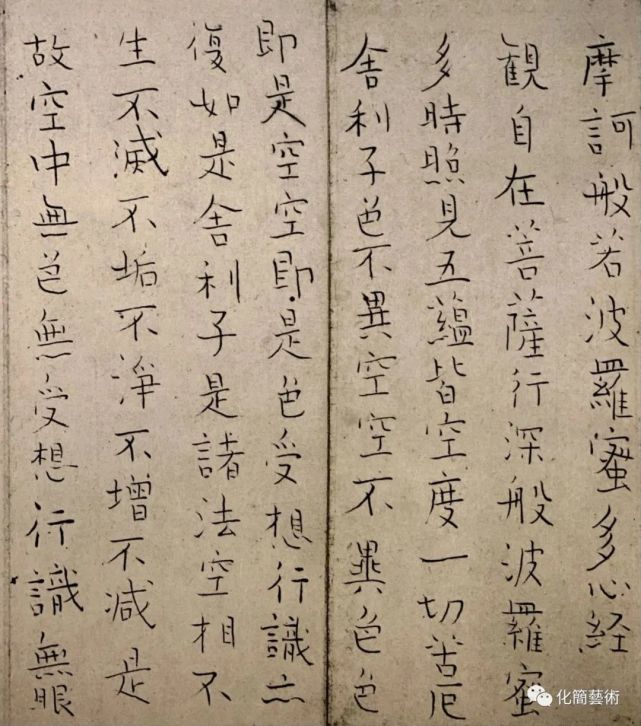 摩訶般若波羅蜜多心経
観自在菩薩行深般波羅蜜
多時照見五蘊皆空度一切苦厄
舎利子色不異空空不異色色
即是空空即是色受想行識亦
復如是舎利子是諸法空相不
生不滅不垢不淨不增不减是
故空中無色無受想行識無眼
化簡藝術